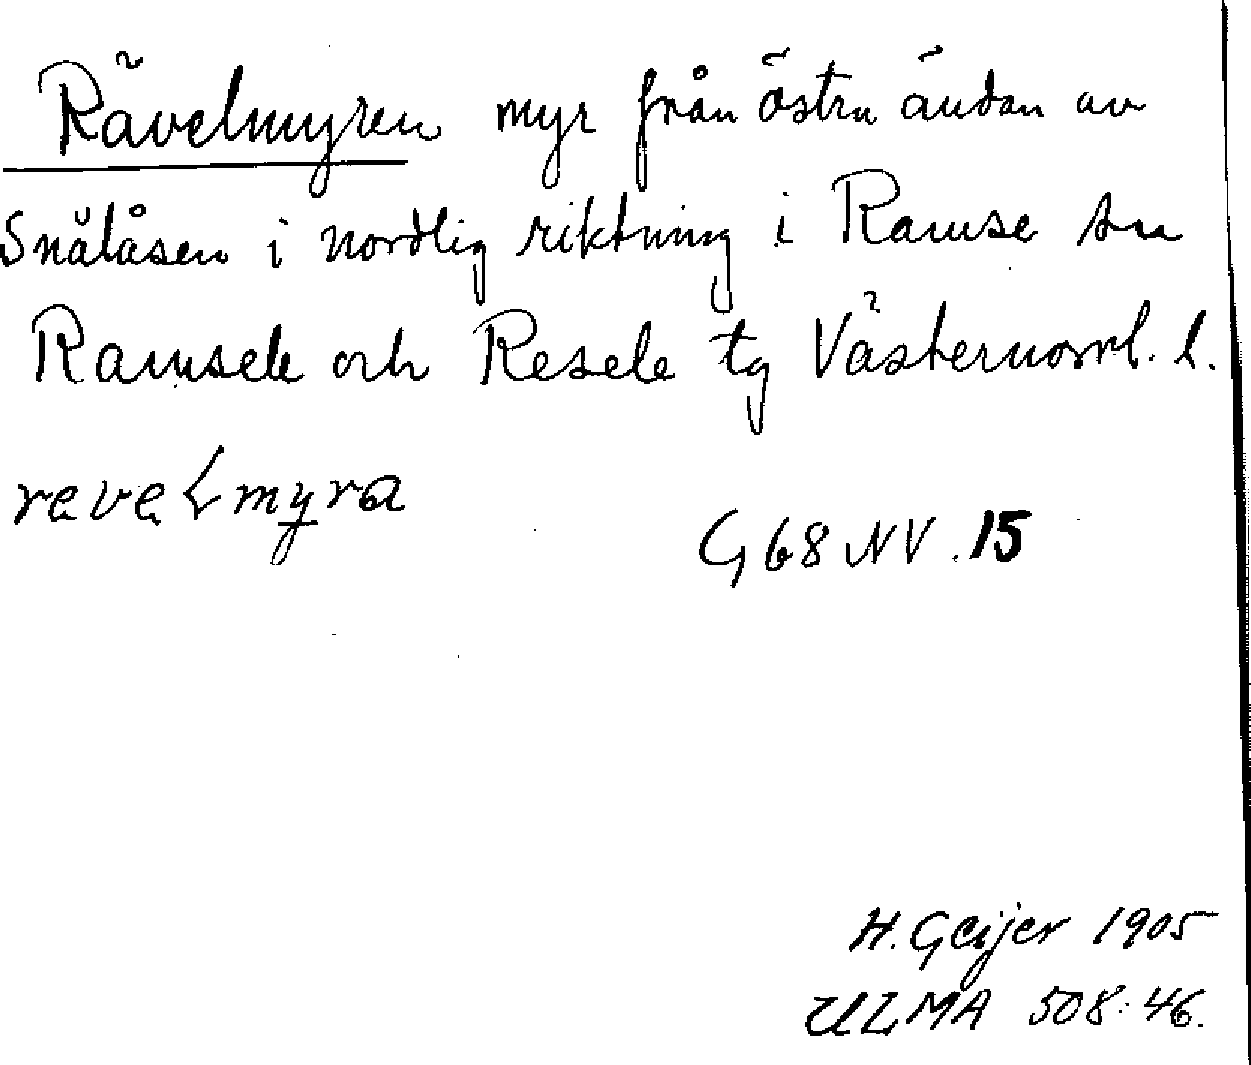 Rävelmyren myr från östra ändan av
Snålåsen i nordlig riktning i Ramse sn
Ramsele och Resele tg Västernorrl. l.
revelmyra
G 68 NV. 15
H. Geijer 1905
ULMA 508:46.